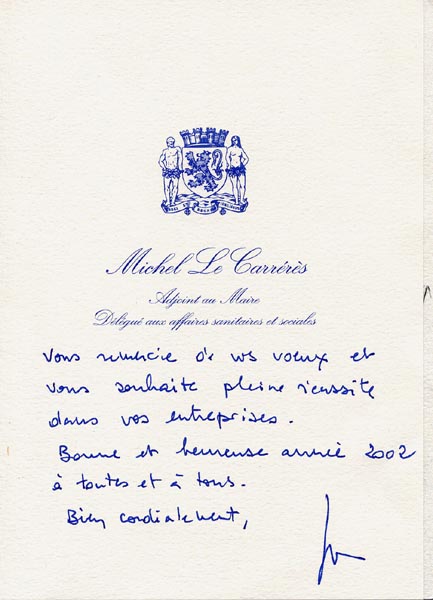 Michel Le Carrérès
Adjoint au Maire
Délégué aux affaires sanitaires et sociales
vous remercie de vos voeux et
vous souhaite pleine réussite
dans vos entreprises.
Bonne et heureuse année 2002
à toutes et à tous.
Bien cordialement,